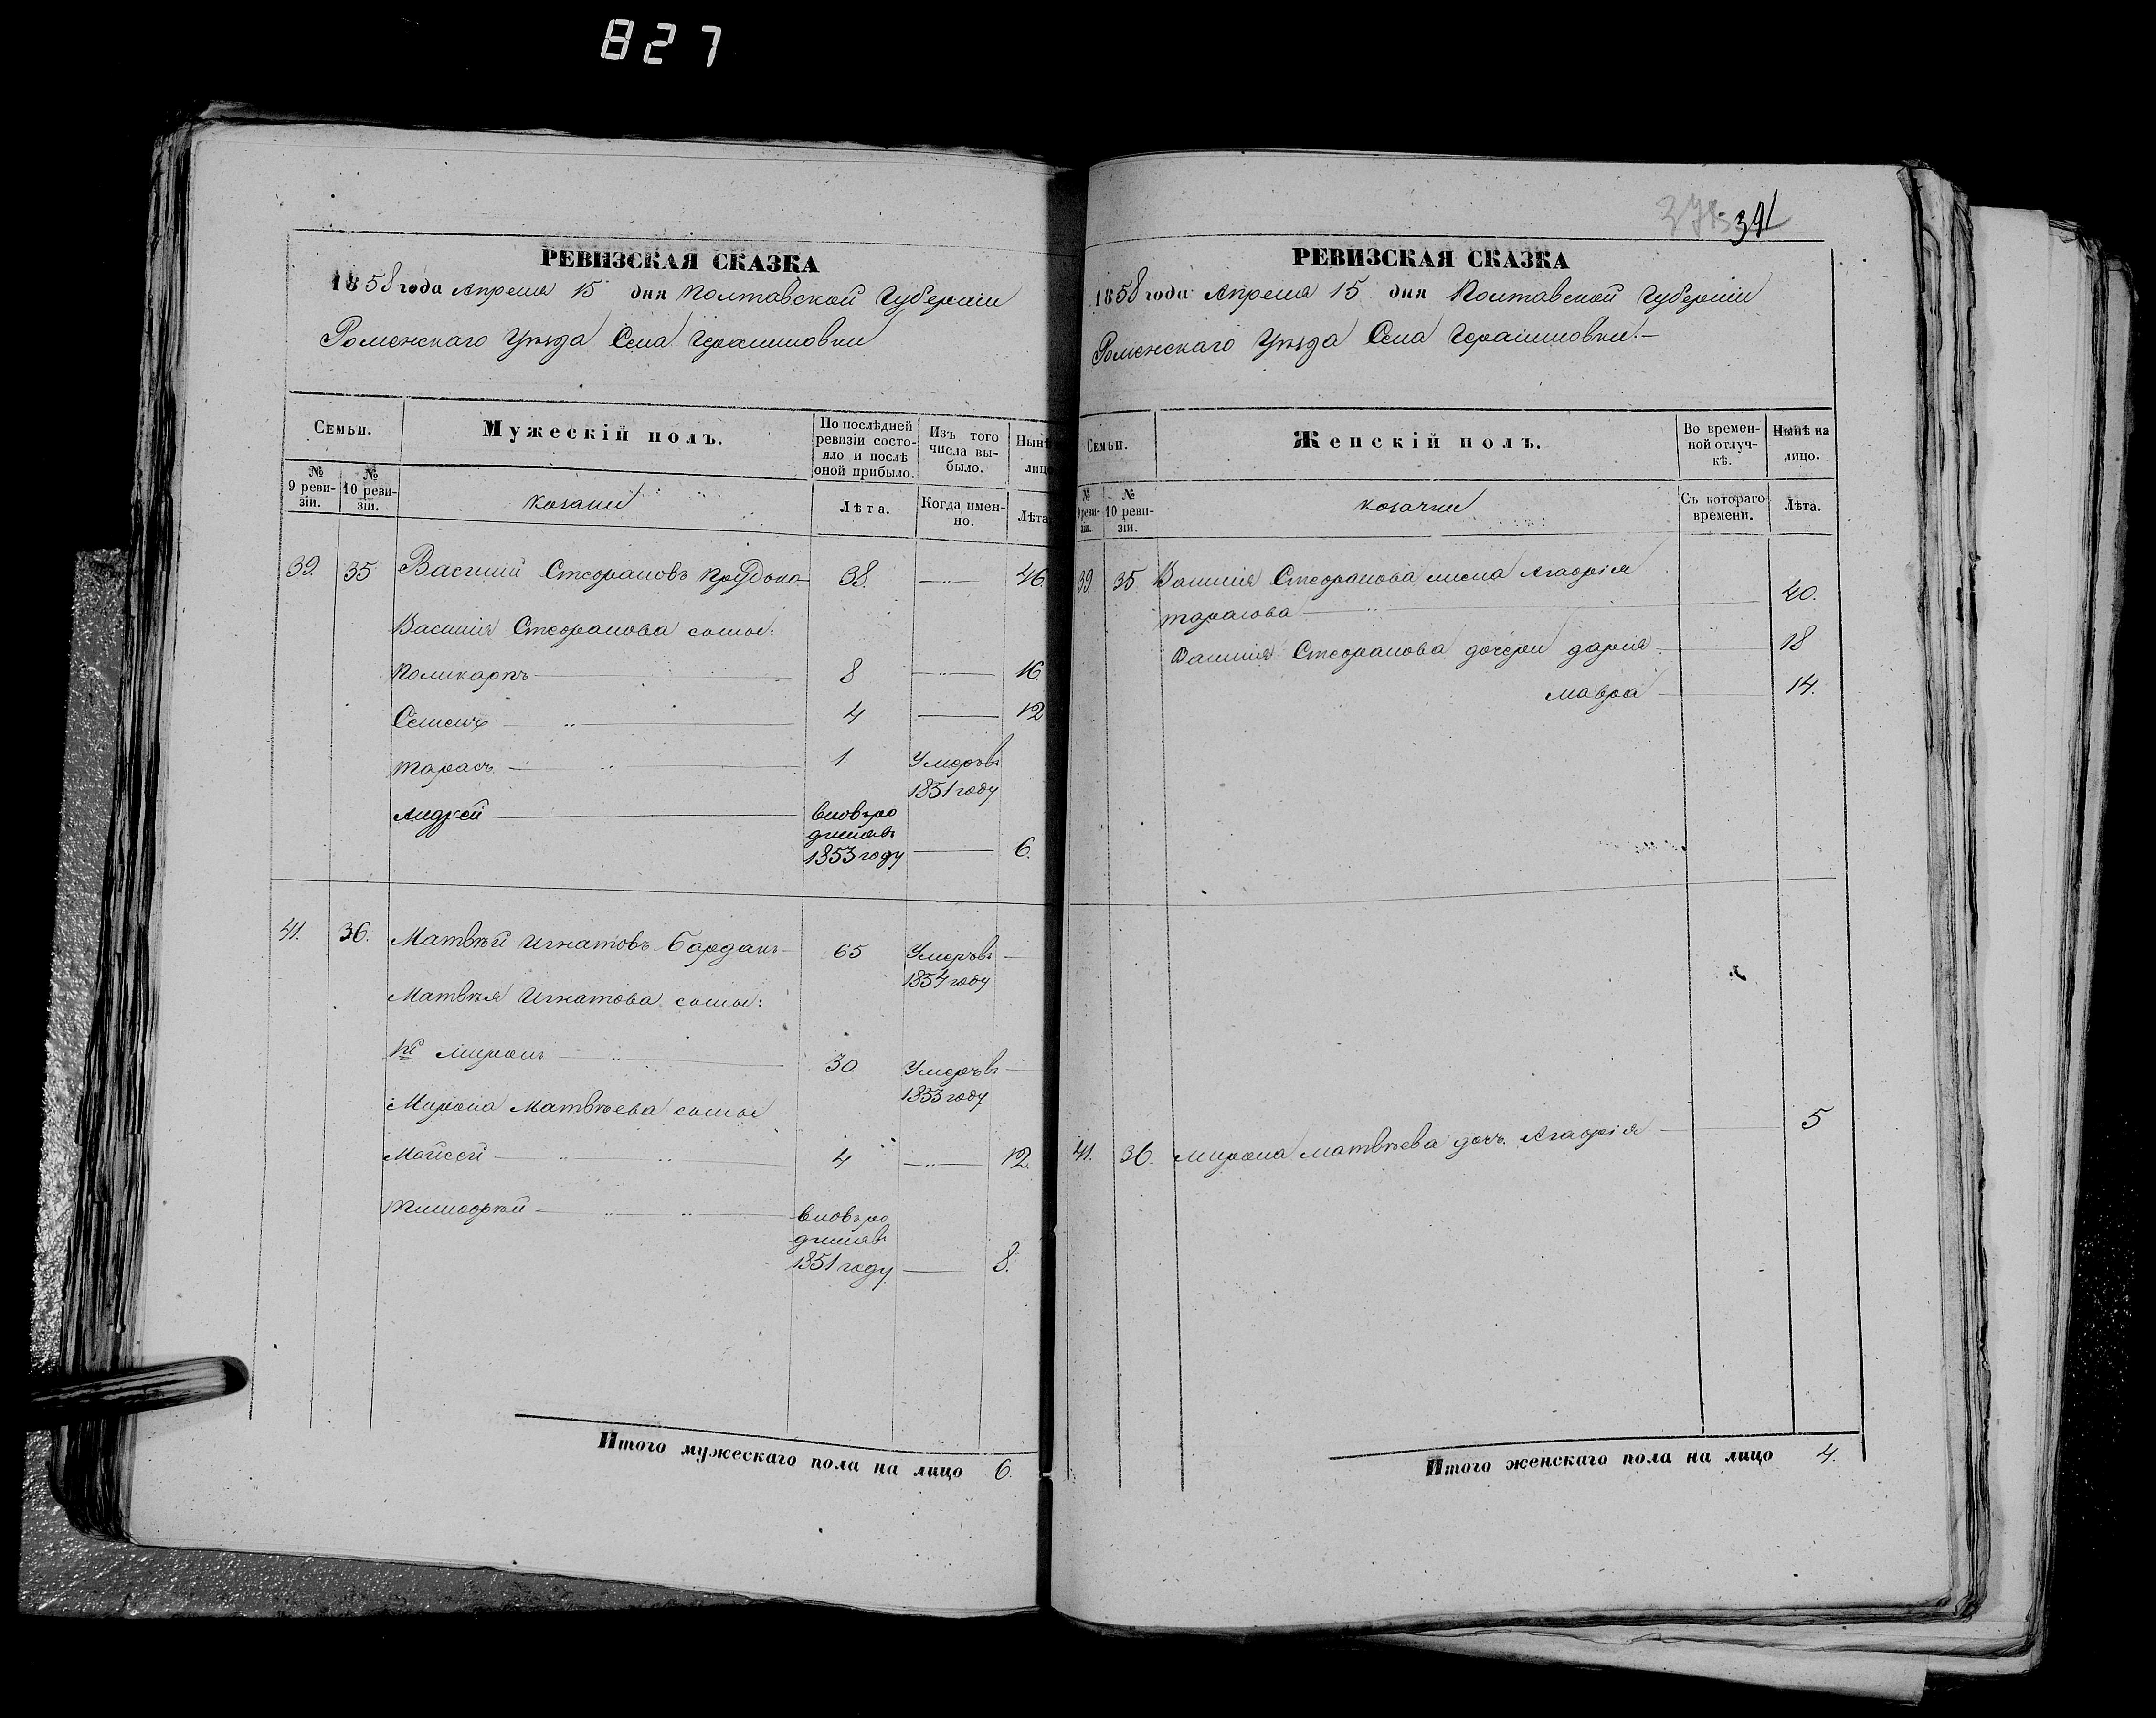 827
РЕВИЗСКАЯ СКАЗКА
1858 года Апреля 15 дня Полтавской Губерніи
Роменскаго Уезда Села Герасимовки
Семьи.
Мужескій полъ.
По послѣдней ревизіи состояло и послѣ оной прибыло.
Изъ того числа выбыло.
Нынѣ лицо
№ 9 ревизіи.
№ 10 ревизіи.
козаки
Лѣта.
Когда именно.
Лѣта
39. 35 Василій Стефановъ 38. 46.
Василія Стефанова сыновья:
Поликарпъ 8 16.
Семенъ 4 12
Тарасъ 1 Умеръ въ
1851 году
Андрей вновь ро
дился въ
1853 году 6.
41. 36. Матвѣй Игнатовъ Бардакъ 65 Умеръ въ
1854 году
Матвѣя Игнатова сыновья:
1й Миронъ 30. Умеръ въ
1853 году
Мирона Матвѣева сыновья
Мойсей 4 12.
Тимофѣй вновь ро
дился въ
1851 году 8.
Итого мужескаго пола на лицо 6.
391
РЕВИЗСКАЯ СКАЗКА
1858 года Апреля 15 дня Полтавской Губерніи
Роменскаго Уезда Села Герасимовки.
Семьи.
Женскій полъ.
Во временной отлучкѣ.
Нынѣ на лицо.
№ 9 ревизіи.
№ 10 ревизіи.
козачки
Съ котораго времени.
Лѣта.
39. 35. Василія Стефанова жена Агафія
Тарасова 40.
Василія Стефанова дочери Дарія 18
Мавра 14.
41. 36. Мирона Матвѣева дочь Агафія 5
Итого женскаго пола на лицо 4.